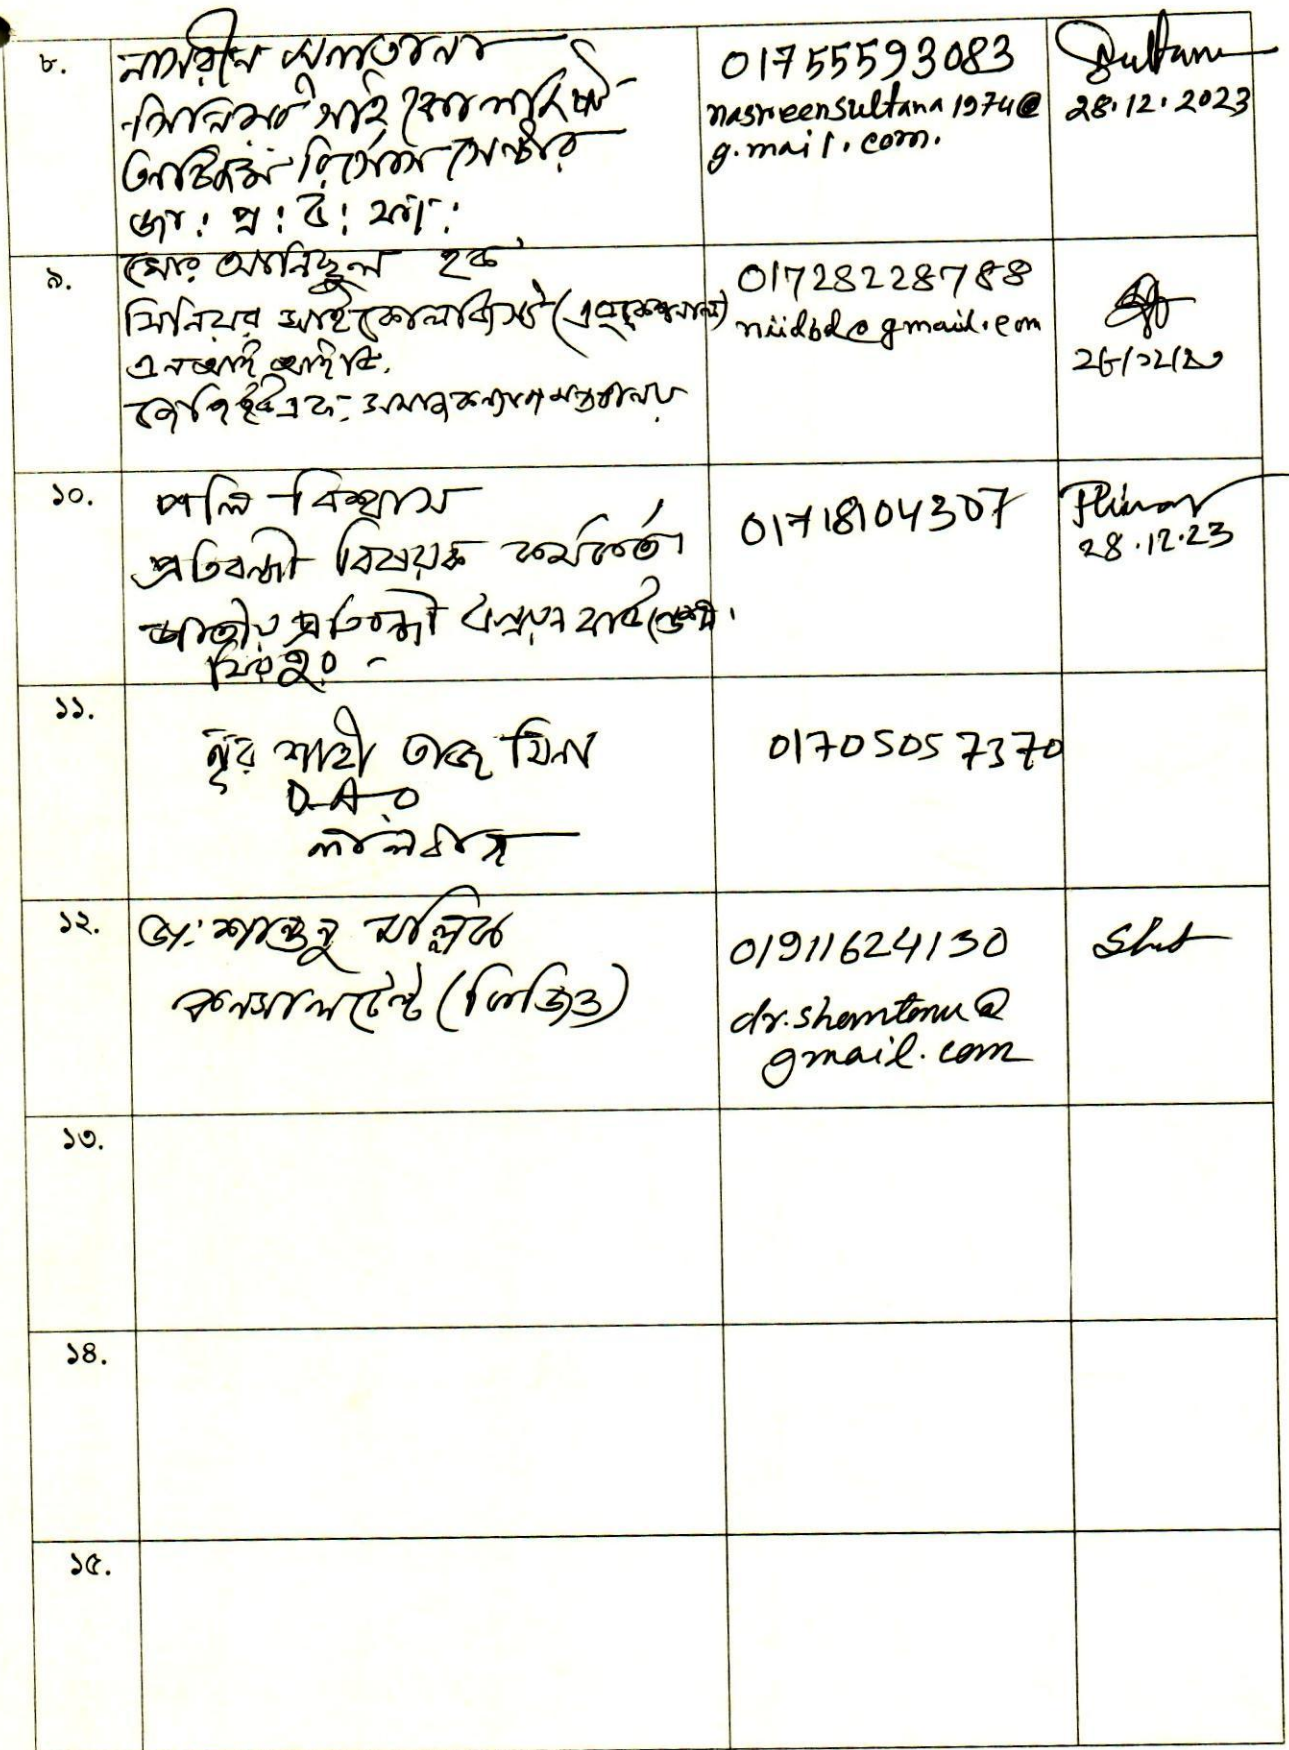 ৮.
নাসরীন সুলতানা
সিনিয়র সাইকোলজিস্ট
অটিজম রিসোর্স সেন্টার
জা: প্র: উ: ফা:
01755593083
nasreensultana1974@
g.mail.com.
Sultana
28.12.2023
৯.
মোঃ আনিছুল হক
সিনিয়র সাইকোলজিস্ট (এডুকেশনাল)
এনআইআইডি,
সমাজকল্যাণ মন্ত্রণালয়
01728228788
niidbd@gmail.com
১০.
পলি বিশ্বাস
প্রতিবন্ধী বিষয়ক কর্মকর্তা
জাতীয় প্রতিবন্ধী উন্নয়ন ফাউন্ডেশন।
মিরপুর
01718104307
28.12.23
১১.
নূর শাহী তাজ মিনা
D.A.O
লালবাগ
01705057370
১২.
ডা: শান্তনু মল্লিক
কনসালটেন্ট (ফিজিও)
01911624130
dr.shamtonu@
gmail.com
১৩.
১৪.
১৫.